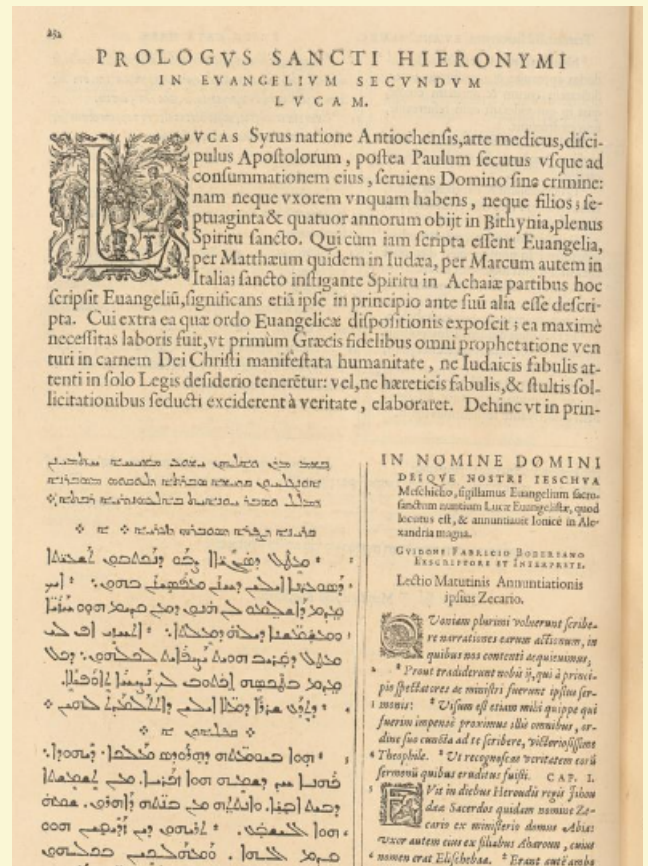 252
PROLOGVS SANCTI HIERONYMI
IN EVANGELIVM SECVNDVM
LVCAM.
LVCAS Syrus natione Antiochensis, arte medicus, disci-
pulus Apostolorum, postea Paulum secutus vsque ad
consummationem eius, seruiens Domino sine crimine:
nam neque vxorem vnquam habens, neque filios; se-
ptuaginta & quatuor annorum obijt in Bithynia, plenus
Spiritu sancto. Qui cùm iam scripta essent Euangelia,
per Matthæum quidem in Iudæa, per Marcum autem in
Italia; sancto instigante Spiritu in Achaiæ partibus hoc
scripsit Euangeliū, significans etiā ipse in principio ante suū alia esse descri-
pta. Cui extra ea quæ ordo Euangelicæ dispositionis exposcit; ea maximè
necessitas laboris fuit, vt primùm Græcis fidelibus omni prophetatione ven
turi in carnem Dei Christi manifestata humanitate, ne Iudaicis fabulis at-
tenti in solo Legis desiderio tenerētur: vel, ne hæreticis fabulis, & stultis sol-
licitationibus seducti exciderent à veritate, elaboraret. Dehinc vt in prin-
ܡܛܠ ܕܣܓܝܐܐ ܨܒܘ ܕܢܟܬܒܘܢ ܬܫܥܝܬܐ
ܕܣܘܥܪܢܐ ܐܝܠܝܢ ܕܚܢܢ ܡܦܣܝܢܢ ܒܗܘܢ. ܐܝܟ
ܡܕܡ ܕܐܫܠܡܘ ܠܢ ܗܢܘܢ ܕܡܢ ܩܕܝܡ ܗܘܘ ܚܙܝܐ
ܘܡܫܡܫܢܐ ܕܝܠܗ ܕܡܠܬܐ. ܐܬܚܙܝ ܐܦ ܠܝ
ܡܛܠ ܕܩܪܝܒ ܗܘܝܬ ܝܨܝܦܐܝܬ ܠܟܠܗܘܢ. ܕܟܠ
ܡܕܡ ܒܛܟܣܗ ܐܟܬܘܒ ܠܟ ܢܨܝܚܐ ܬܐܘܦܝܠܐ.
ܕܬܕܥ ܫܪܪܐ ܕܡܠܐ ܐܝܠܝܢ ܕܐܬܬܠܡܕܬ ܠܗܝܢ
ܗܘܐ ܒܝܘܡܬܗ ܕܗܪܘܕܣ ܡܠܟܐ ܕܝܗܘܕܐ.
ܟܗܢܐ ܚܕ ܕܫܡܗ ܗܘܐ ܙܟܪܝܐ. ܡܢ ܬܫܡܫܬܐ
ܕܒܝܬ ܐܒܝܐ. ܘܐܢܬܬܗ ܡܢ ܒܢܬܗ ܕܐܗܪܘܢ. ܫܡܗ
ܗܘܐ ܐܠܝܫܒܥ. ܬܪܝܗܘܢ ܕܝܢ ܙܕܝܩܝܢ ܗܘܘ
IN NOMINE DOMINI
DEIQVE NOSTRI IESCHVA
Meschicho, sigillamus Euangelium sacro-
sanctum nuntium Lucæ Euangelistæ, quod
locutus est, & annuntiauit Ionicè in Ale-
xandria magna.
GVIDONE FABRICIO BODERIANO
EXSCRIPTORE ET INTERPRETE.
Lectio Matutinis Annuntiationis
ipsius Zecario.
QVoniam plurimi voluerunt scribe-
re narrationes earum actionum, in
quibus nos contenti acquieuimus,
2 Prout tradiderunt nobis ij, qui à princi-
pio spectatores ac ministri fuerunt ipsius ser-
monis: 3 Visum est etiam mihi quippe qui
fuerim impensè proximus illis omnibus, or-
dine suo cuncta ad te scribere, victoriosissime
Theophile. 4 Vt recognoscas veritatem eorū
sermonū quibus eruditus fuisti. CAP. I.
FVit in diebus Heroudis regis Jihou
dæ Sacerdos quidam nomine Ze-
cario ex ministerio domus Abia:
vxor autem eius ex filiabus Aharoun, cuius
nomen erat Elischebaa. 6 Erant autē ambo